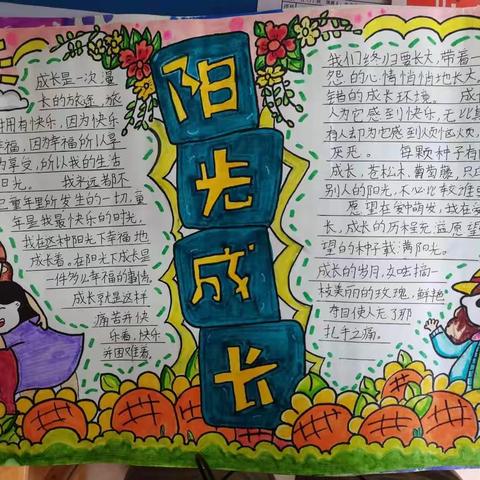 阳光成长
成长是一次漫
长的旅途,旅
拥有快乐,因为快乐
幸福,因为幸福所以享
为享受,所以我的生活
阳光。 我永远都不
童年里所发生的一切,童
年是我最快乐的时光,
我在这种阳光下幸福地
成长着,在阳光下成长是
一件多么幸福的事情。
成长就是这样
痛苦并快
乐着,快乐
并困难着。
我们终归要长大,带着一
怨的心情悄悄地长大,
错的成长环境。 成
人为它感到快乐,无比
有人却为它感到火烦恼火烦,
灰恶。 每颗种子有
成长,苍松木,黄荀藤,只
别人的阳光,不心比较谁
愿望在爱中萌发,我在
长,成长的历程充 愿望
望的种子载:满阳光。
成长的岁月,如哇摘一
枝美丽的玫瑰,鲜艳
夺目使人忘了那
扎手之痛。